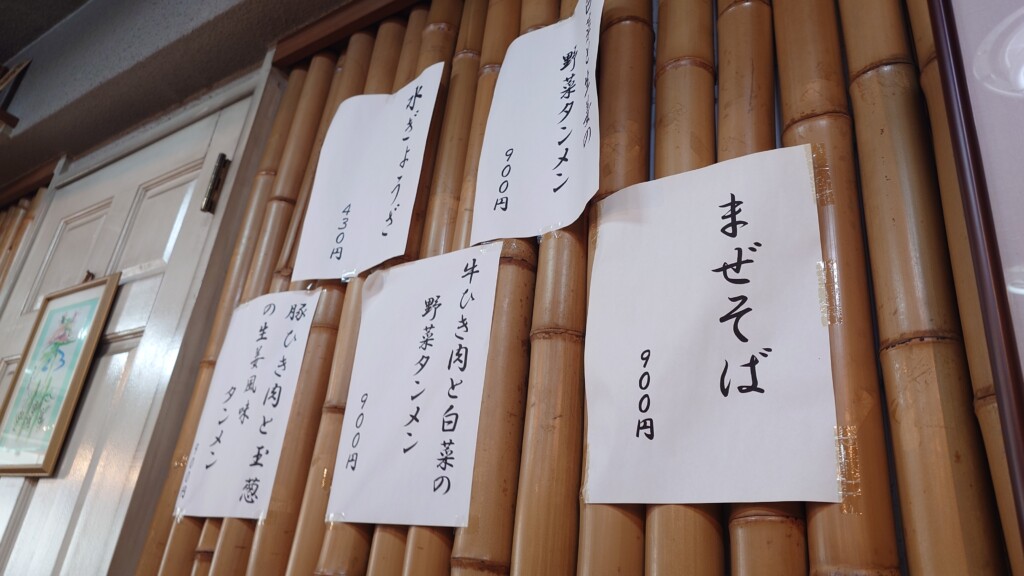 まぜそば
900円
野菜タンメン
900円
水ぎょうざ
430円
牛ひき肉と白菜の
野菜タンメン
900円
豚ひき肉と玉葱
の生姜風味
タンメン